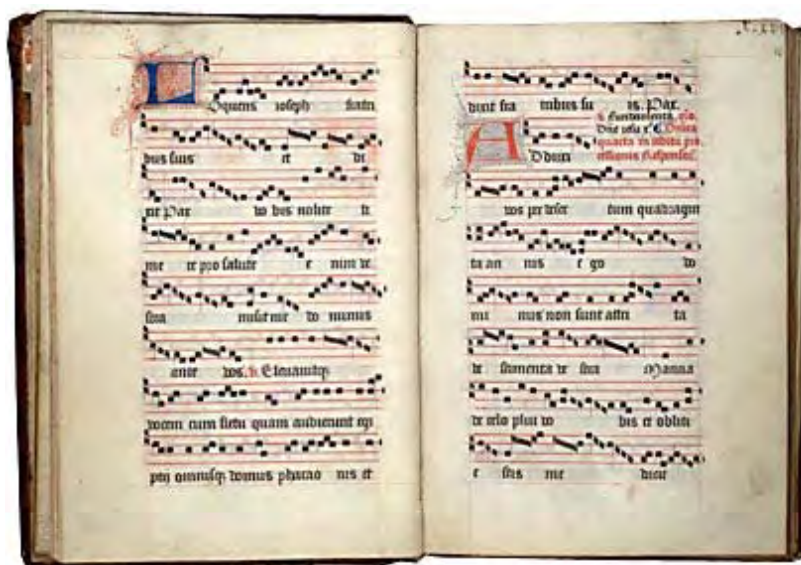 Loquens ioseph fratri
bus suis et di
xit Pax vo bis nolite ti
me re pro salute e nim ve
stra misit me do minus
ante vos. v. Eleuauitq;
vocem cum fletu quam audierunt egi
ptij omnisq; domus pharao nis et
dixit fra tribus su is. Pax.
quarta in reditu pro
ADduxi
vos per deser tum quadragin
ta an nis e go do
mi nus non sunt attri ta
ve stimenta ve stra Manna
de celo plui vo bis et obliti
e stis me dicit